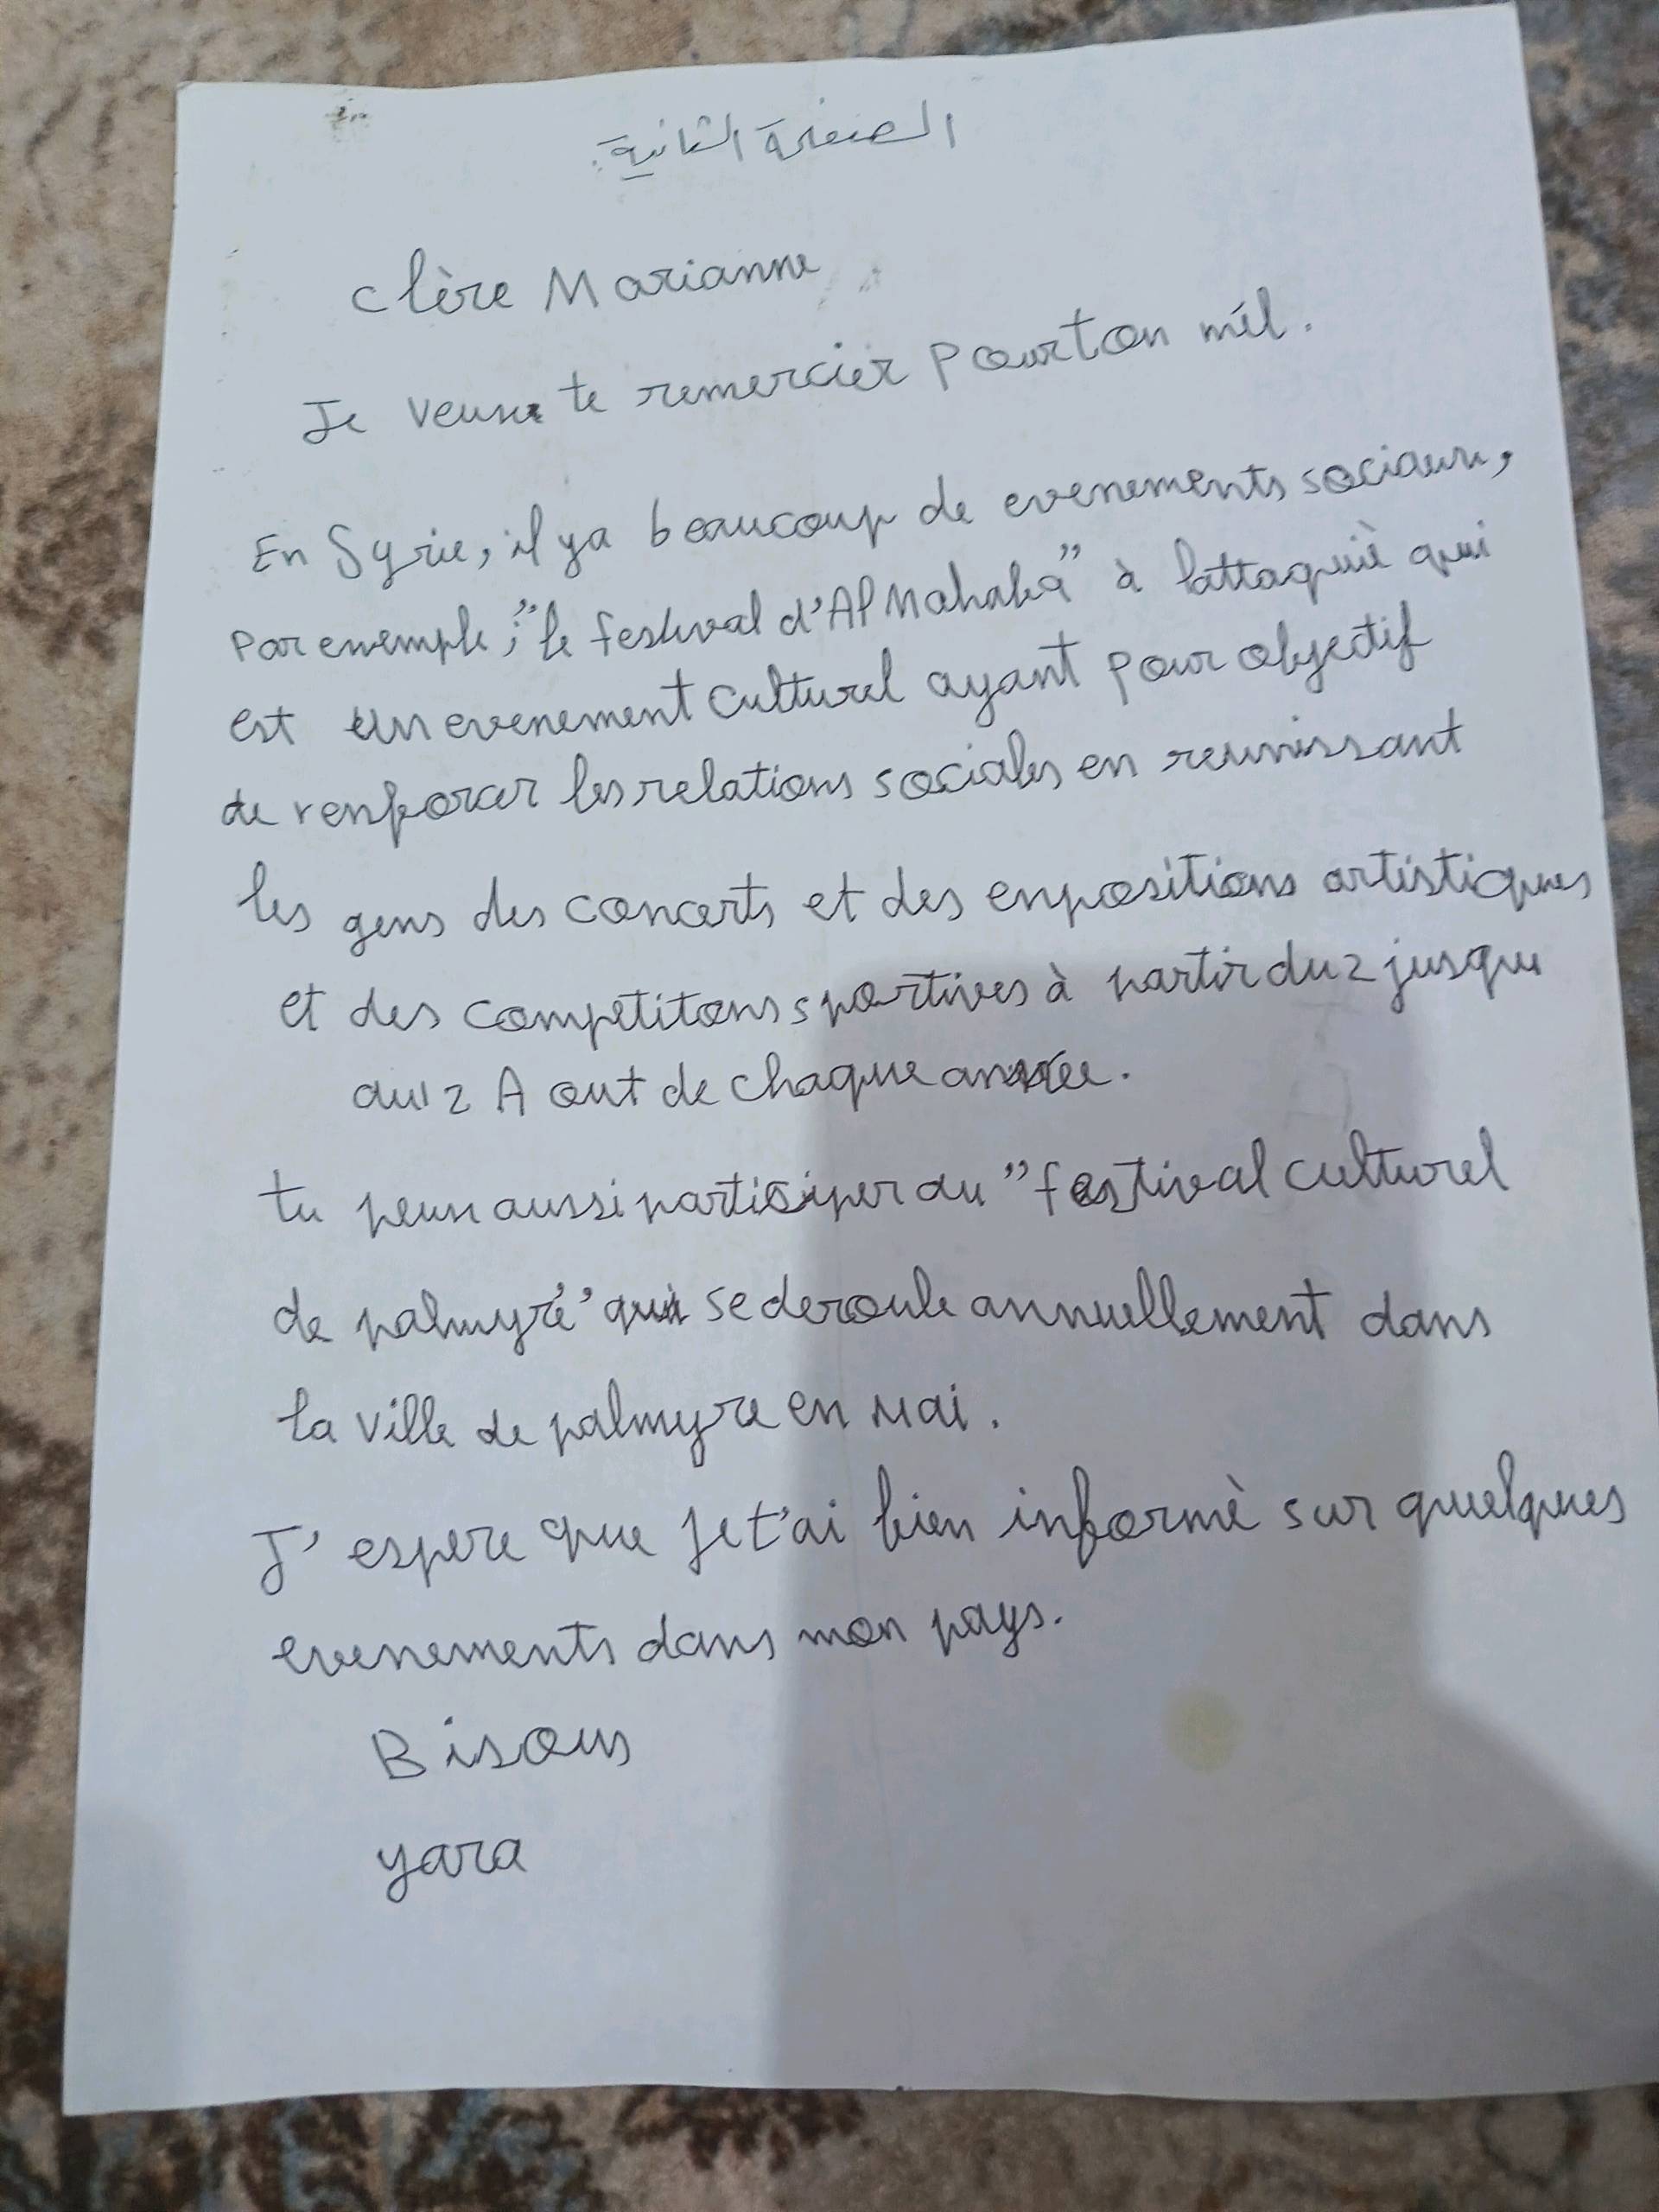 الصفحة الثانية:
chère Marianne
Je veux te remercier pour ton mél.
En Syrie, il ya beaucoup de evenements sociaux,
Par exemple, "le festival d'Al Mahaba" à lattaquiè qui
est un evenement culturel ayant pour objectif
de renforcer les relations sociales en reunissant
les gens des concerts et des expositions artistiques
et des competitons sportives à partir du 2 jusqu
au 12 Aout de chaque année.
tu peux aussi participer au "festival culturel
de palmyre" qui se deroule annuellement dans
la ville de palmyre en Mai.
J'espere que je t'ai bien informè sur quelques
evenements dans mon pays.
Bisous
yara